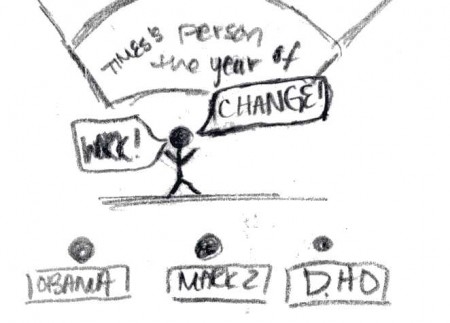 TIMES's person
the year of
CHANGE!
WORK!
OBAMA
MARK Z
D.HO